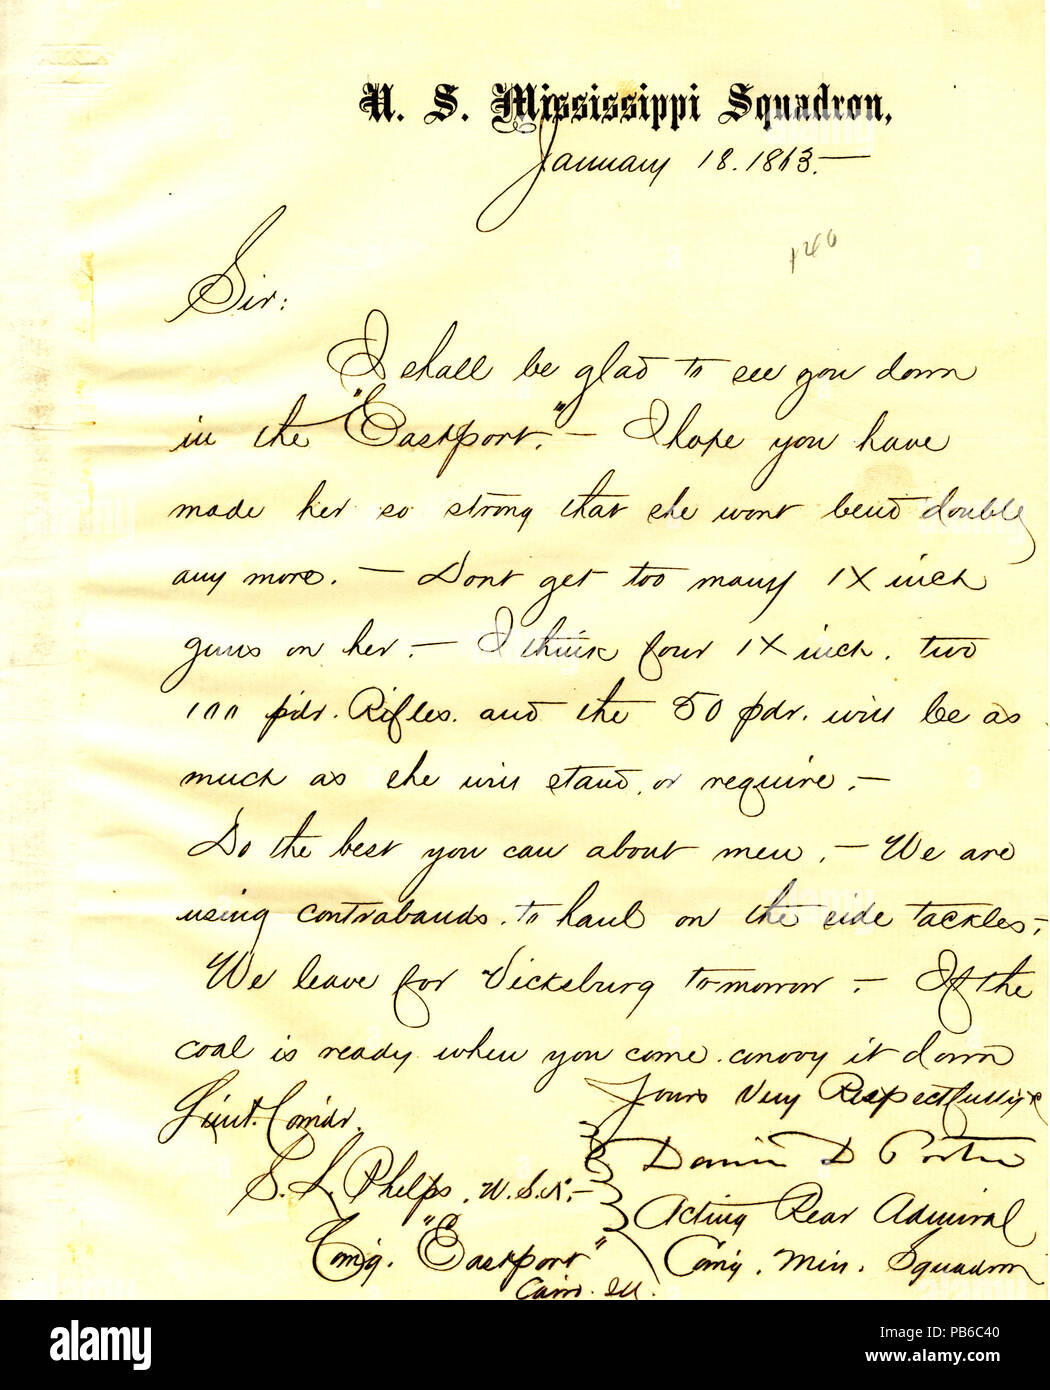 U. S. Mississippi Squadron,
January 18. 1863.—
140
Sir:
I shall be glad to see you down
in the "Eastport." — I hope you have
made her so strong that she wont bend double
any more. — Dont get too many IX inch
guns on her. — I think four IX inch. two
100 pdr. Rifles. and the 50 pdr. will be as
much as she will stand, or require. —
Do the best you can about men. — We are
using contrabands. to haul on the side tackles. —
We leave for Vicksburg tomorrow. — If the
coal is ready when you come. convoy it down
Yours Very Respectfully
Lieut. Comdr.
David D Porter
S. L. Phelps. U.S.N. —
Acting Rear Admiral
Comg. "Eastport"
Comg. Miss. Squadron
Cairo. Ill.
alamy
Image ID: PB6C40
www.alamy.com